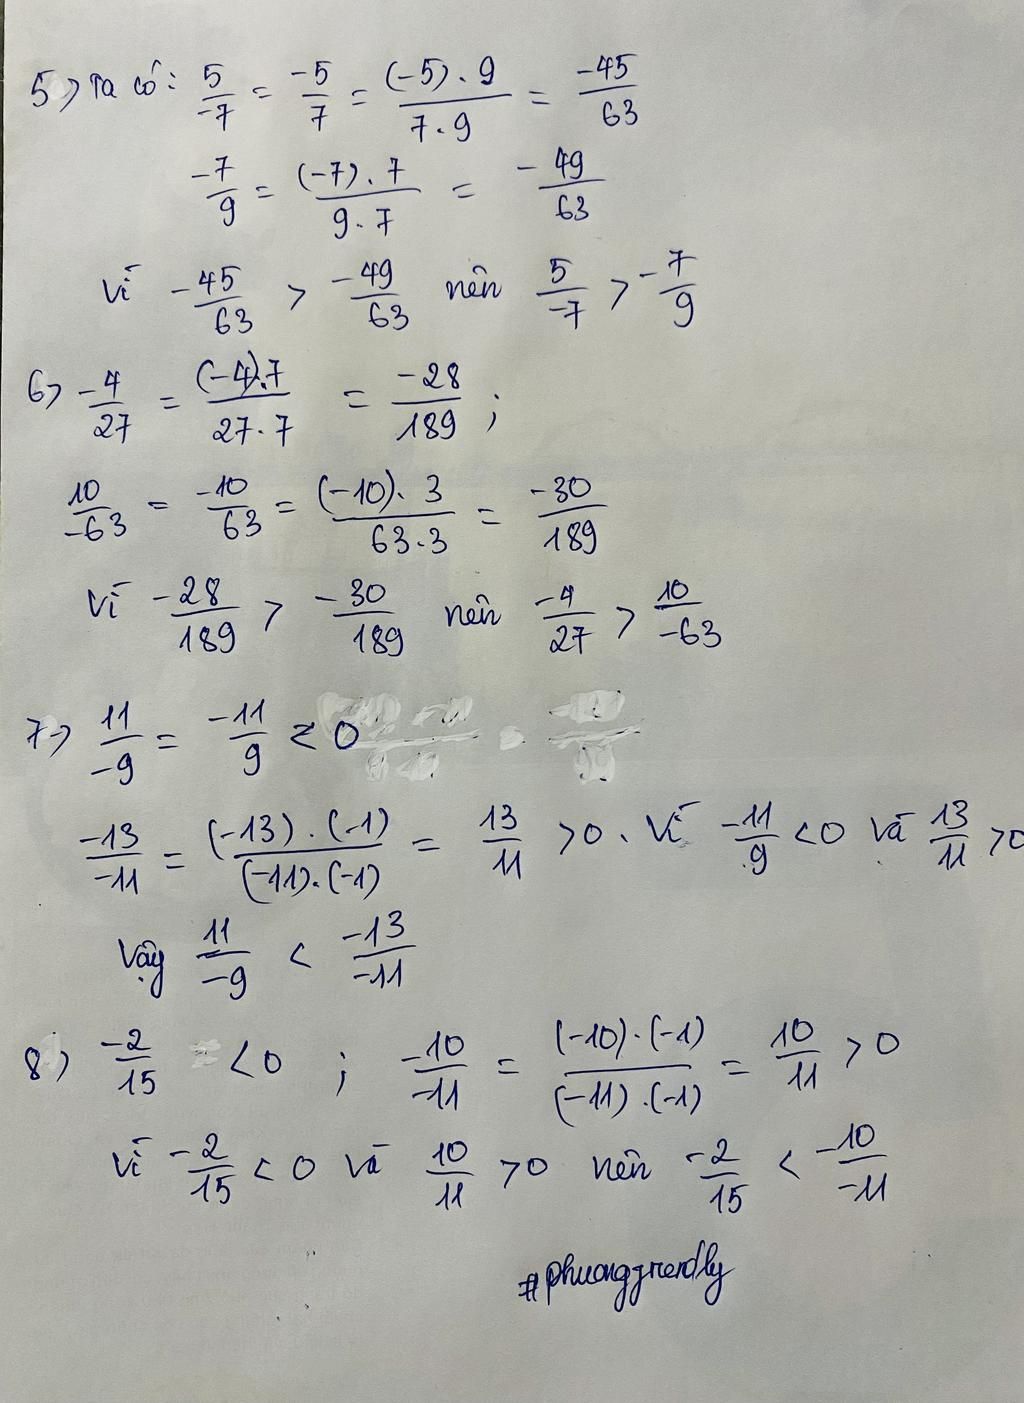 5) Ta có: 5/-7 = -5/7 = (-5).9/7.9 = -45/63
-7/9 = (-7).7/9.7 = -49/63
Vì -45/63 > -49/63 nên 5/-7 > -7/9
6) -4/27 = (-4).7/27.7 = -28/189 ;
10/-63 = -10/63 = (-10).3/63.3 = -30/189
Vì -28/189 > -30/189 nên -4/27 > 10/-63
7) 11/-9 = -11/9 < 0
-13/-11 = (-13).(-1)/(-11).(-1) = 13/11 > 0. Vì -11/9 < 0 và 13/11 > 0
Vậy 11/-9 < -13/-11
8) -2/15 < 0 ; -10/-11 = (-10).(-1)/(-11).(-1) = 10/11 > 0
Vì -2/15 < 0 và 10/11 > 0 nên -2/15 < -10/-11